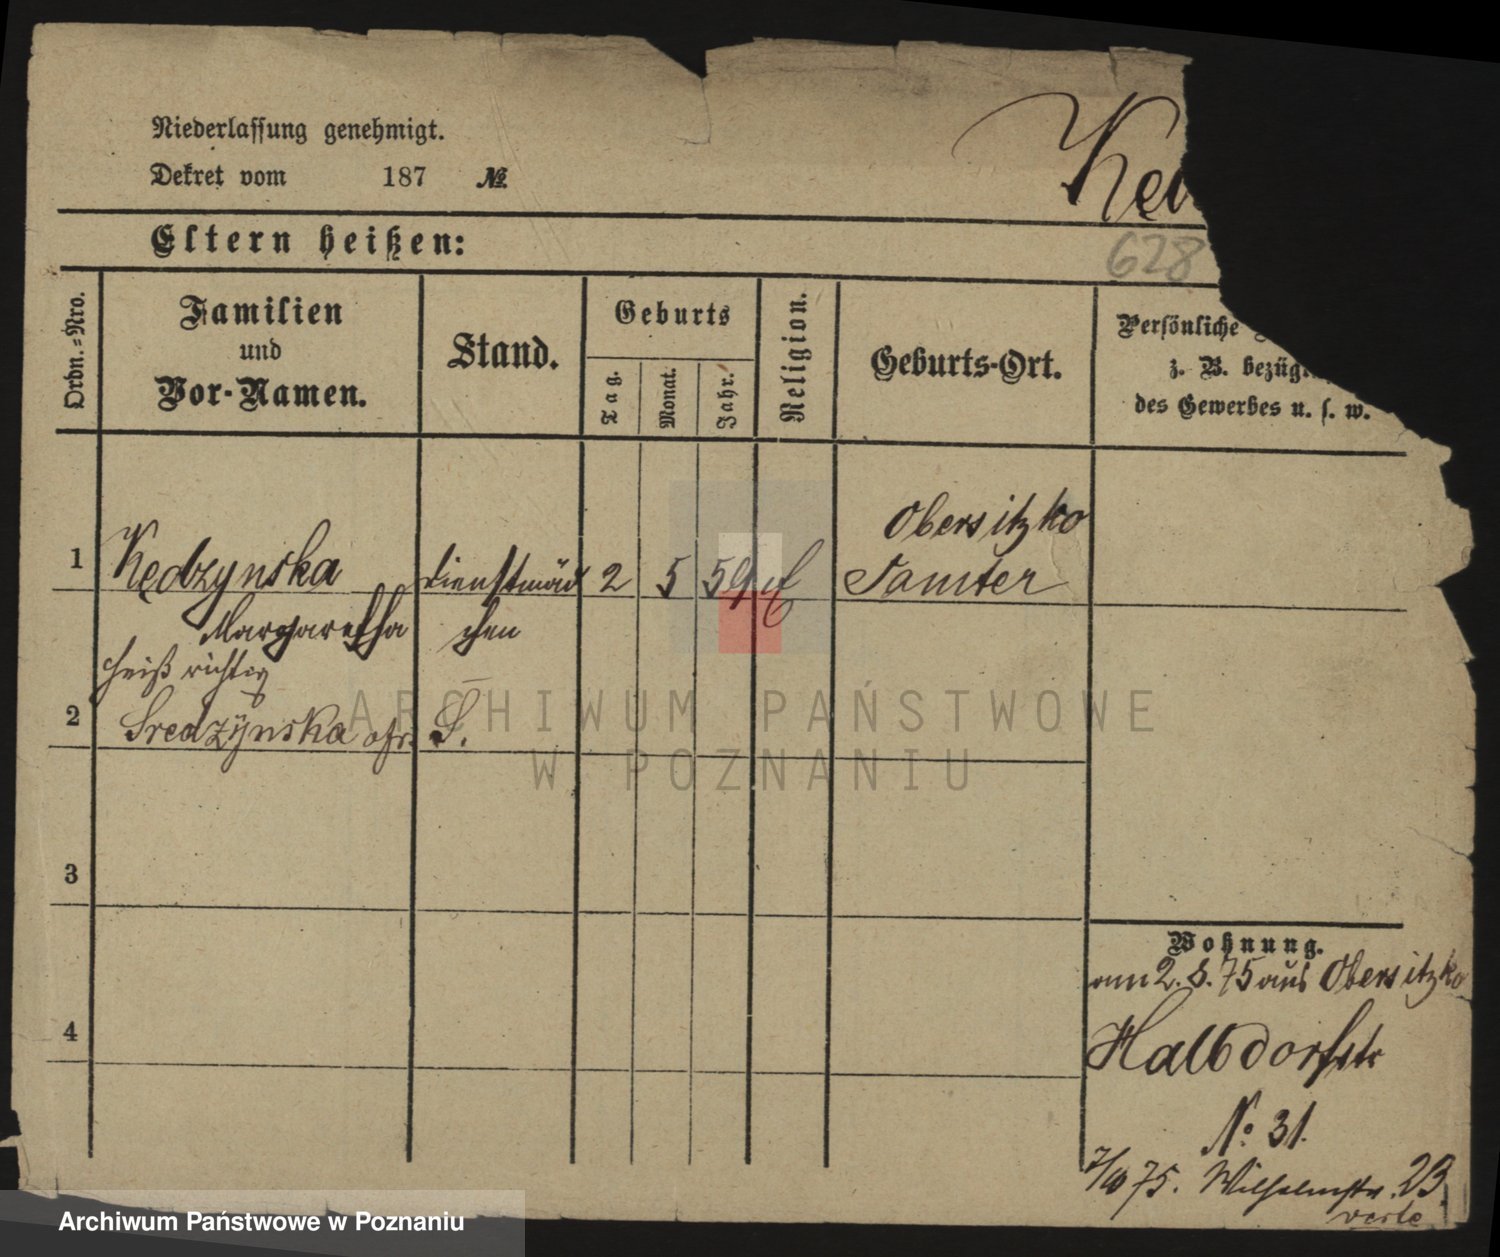 Niederlassung genehmigt.
Dekret vom 187 №
Eltern heißen:
628
Ordn.-Nro.
Familien
und
Vor-Namen.
Stand.
Geburts
Tag.
Monat.
Jahr.
Religion.
Geburts-Ort.
Persönliche
z. B. bezügl.
des Gewerbes u. s. w.
1 Kędzynska Dienstmäd 2 5 59 Obersitzko
Samter
Margaretha chen
heiß richtig
2 Sredzÿnska cfr. S.
3
4
Wohnung.
am 2. 8. 75 aus Obersitzko
Halbdorfstr
No 31.
7/10 75. Wilhelmstr. 23
verte
ARCHIWUM PAŃSTWOWE
W POZNANIU
Archiwum Państwowe w Poznaniu